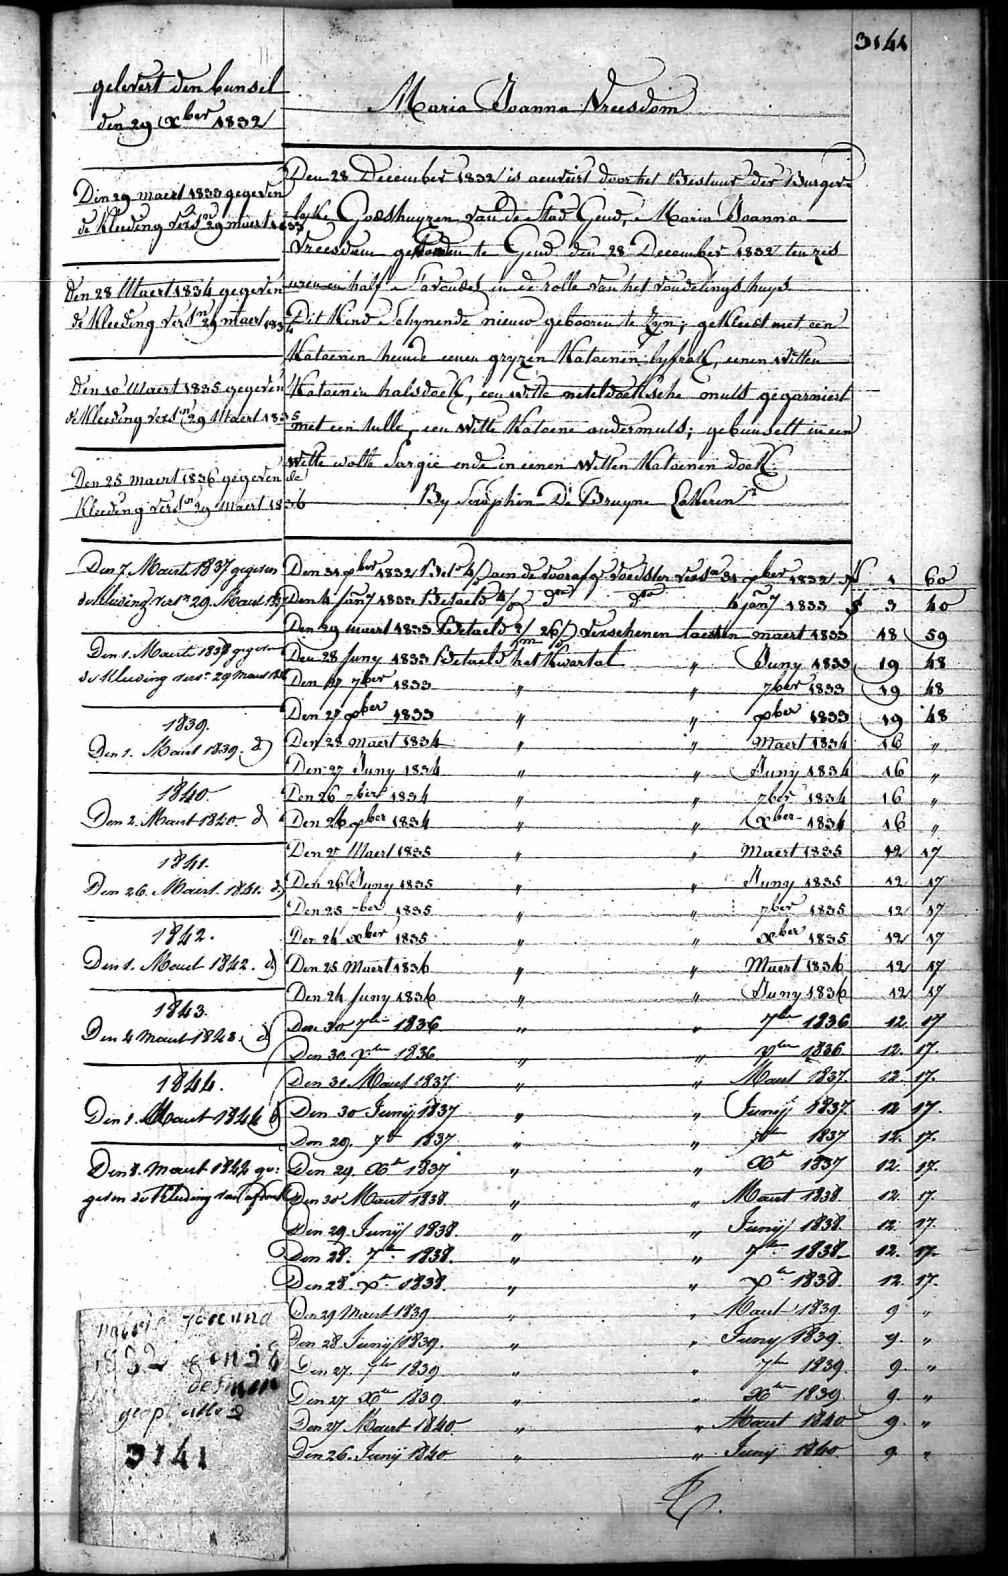 3141
gelevert den bunsel
den 29 Xber 1832
Maria Joanna Vreesdom
Den 29 maert 1833 gegeven
de Kleeding vers.en 29 maert 1833
Den 28 Maert 1834 gegeven
de Kleeding vers.en 29 maert 1834
Den 10 Maert 1835 gegeven
de Kleeding vers.en 29 Maert 1835
Den 25 maert 1836 gegeven de
Kleeding vers.en 29 maert 1836
Den 7. Maert 1837 gegeven
de kleeding vers.n 29. Maert 1837
Den 1. Maert 1838 gegeven
de Kleeding vers.n 29 Maert 1838
1839.
Den 1. Maert 1839. d
1840.
Den 2. Maert 1840. d
1841.
Den 26. Maert. 1841. d
1842.
Den 1. Maert 1842. d
1843.
Den 4 Maert 1843. d
1844.
Den 1. Maert 1844 d
Den 8. Maert 1844 ge:
geven de Kleeding van
Den 28 December 1832 is door het Bestuur der Burger=
lyke Godshuyzen van de Stad Gend, Maria Joanna
Vreesdom gevonden te Gend den 28 December 1832 ten zes
uren en half S'avondts in de rolle van het vondelings huys
Dit Kind Schynende nieuw gebooren te zyn; gekleed met een
Katoenen hemde eenen gryzen Katoenen lyfrok, eenen witten
Katoenen halsdoek, een witte neteldoeksche muts gegarniert
met een tulle, een witte Katoene ondermuts; gebunselt in een
witte wolle Sargie ende in eenen witten Katoenen doek.
By Seraphin De Bruyne Lokeren
Den 31 Xber 1832 Bet. aen de voedster vers.en 31 Xber 1832 1 60
Den 4 Jany 1833 Betaelt do do 4 Jany 1833 3 40
Den 29 maert 1833 Betaelt verschenen laesten maert 1833 18 59
Den 28 Juny 1833 Betaelt het Kwartal " Juny 1833 19 48
Den 27 7ber 1833 " " 7ber 1833 19 48
Den 27 Xber 1833 " " Xber 1833 19 48
Den 28 maert 1834 " " Maert 1834 16 "
Den 27 Juny 1834 " " Juny 1834 16 "
Den 26 7ber 1834 " " 7ber 1834 16 "
Den 26 Xber 1834 " " Xber 1834 16 "
Den 27 Maert 1835 " " Maert 1835 12 17
Den 26 Juny 1835 " " Juny 1835 12 17
Den 25 7ber 1835 " " 7ber 1835 12 17
Den 24 Xber 1835 " " Xber 1835 12 17
Den 25 Maert 1836 " " Maert 1836 12 17
Den 24 Juny 1836 " " Juny 1836 12 17
Den 30 7ber 1836 " " 7ber 1836 12 17
Den 30. Xber 1836 " " Xber 1836 12. 17.
Den 31 Maert 1837 " " Maert 1837. 12. 17.
Den 30 Junij 1837 " " Junij 1837. 12 17.
Den 29. 7br 1837. " " 7br 1837 12. 17.
Den 29. Xbr 1837 " " Xbr 1837 12. 17.
Den 30 Maert 1838. " " Maert 1838. 12. 17.
Den 29. Junij 1838. " " Junij 1838. 12 17.
Den 28. 7br 1838. " " 7br 1838. 12. 17.
Den 28. Xbr 1838. " " Xbr 1838. 12 17.
Den 29 Maert 1839 " " Maert 1839. 9 "
Den 28. Junij 1839. " " Junij 1839. 9. "
Den 27. 7br 1839 " " 7br 1839. 9. "
Den 27 Xbr 1839 " " Xbr 1839. 9. "
Den 27 Maert 1840. " " Maert 1840 9. "
Den 26. Junij 1840 " " Junij 1840. 9 "
Maria Joanna
1832 den 28
desem
3141